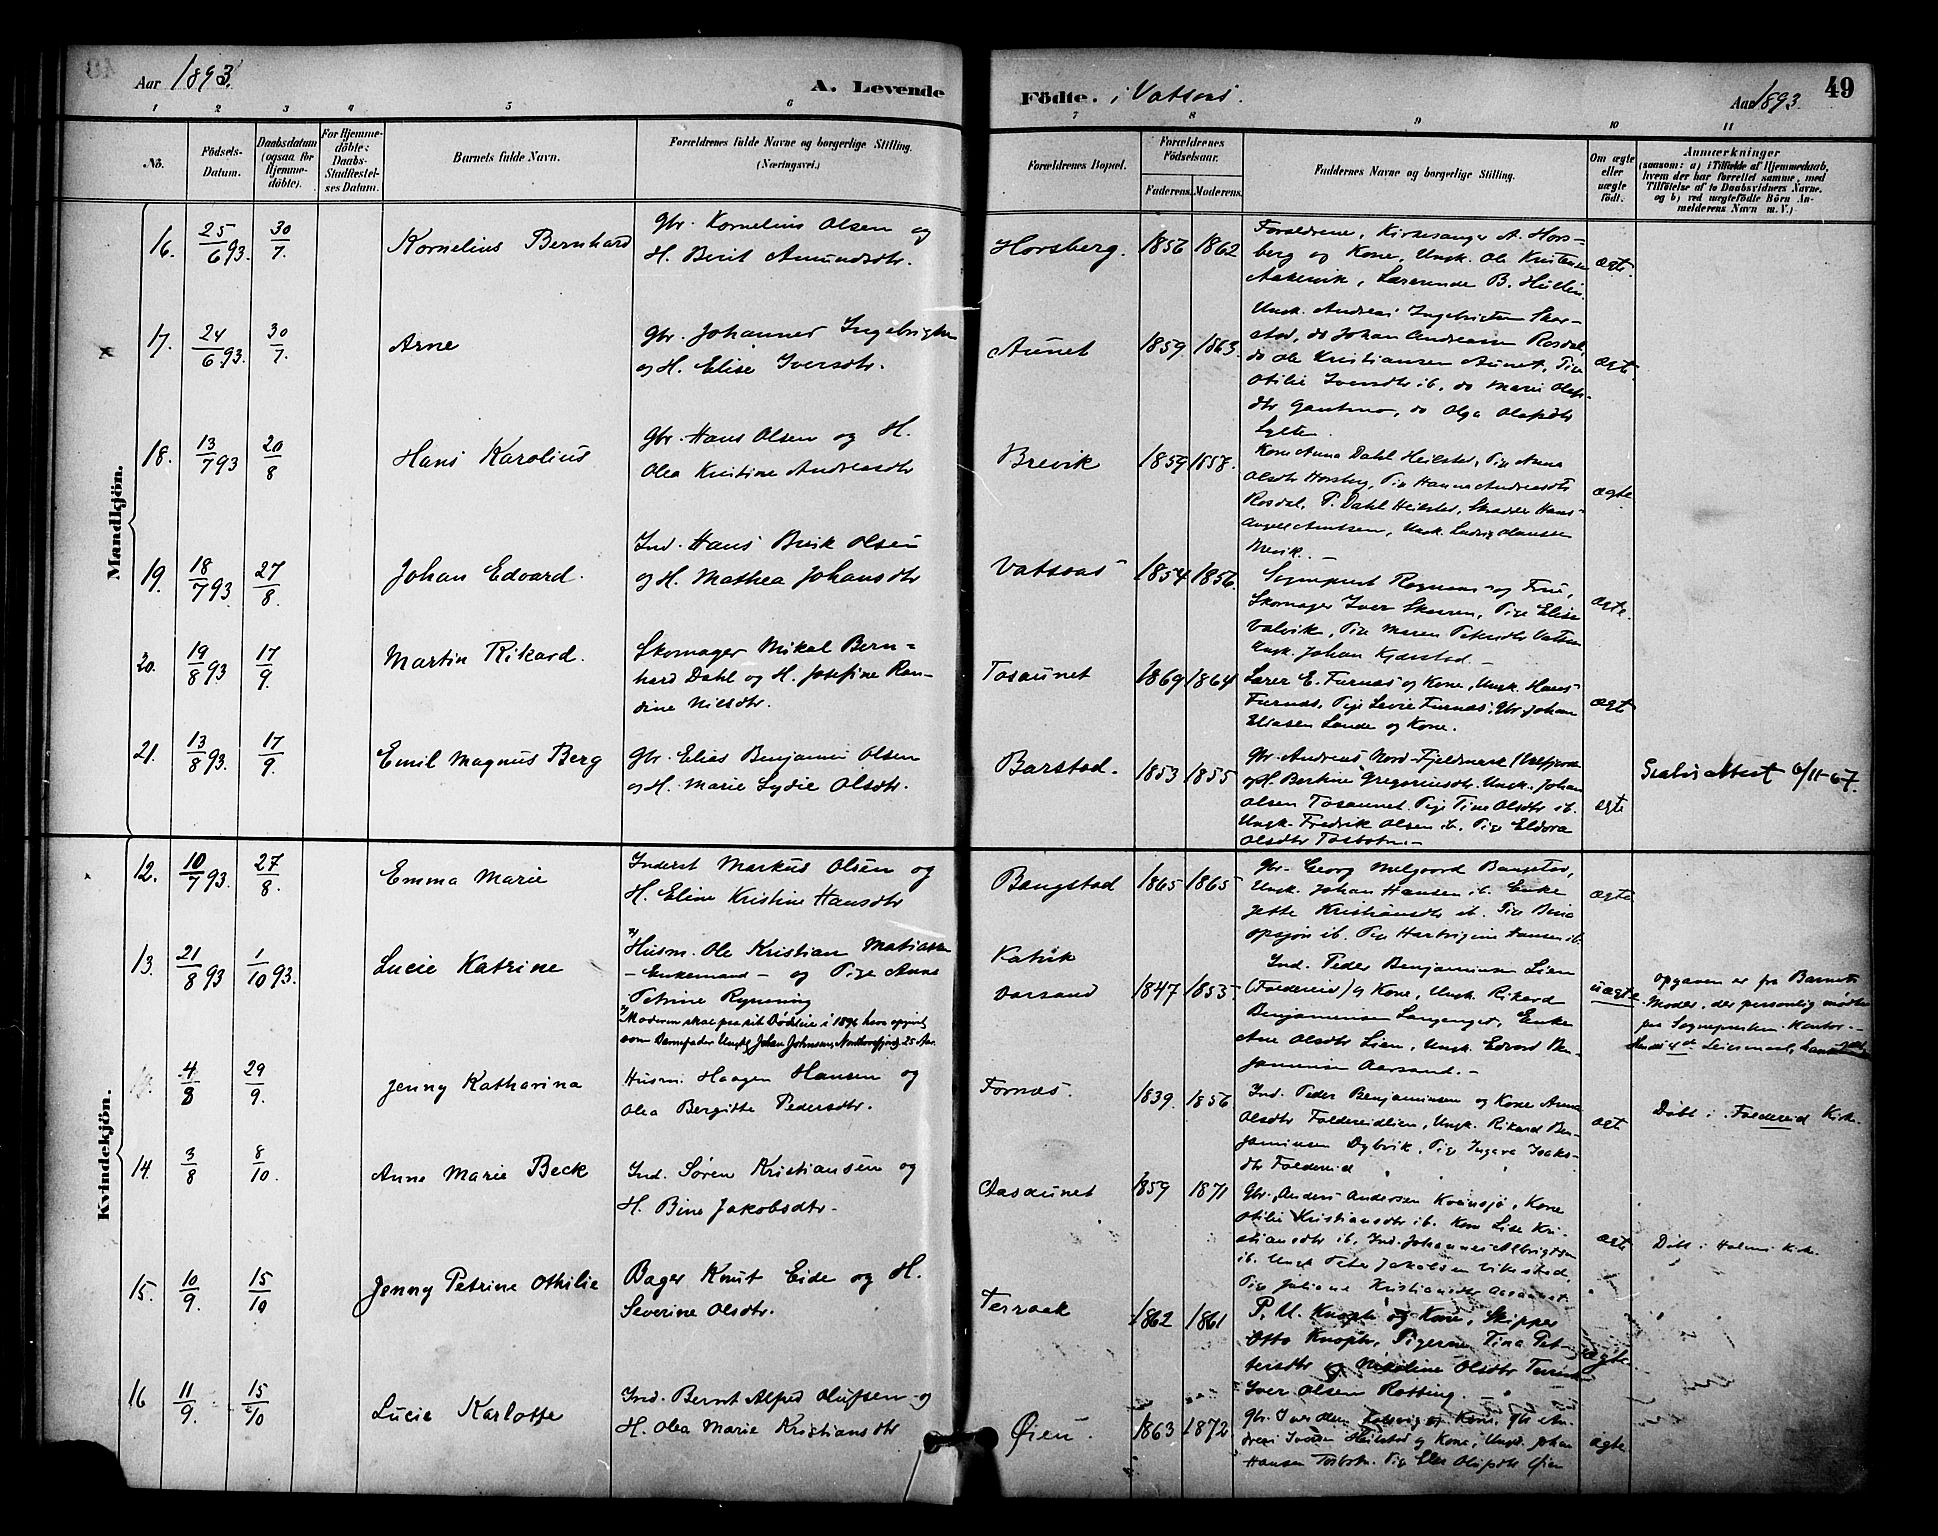 Aar 1893.
A. Levende
Födte. i Vatsaas.
Aar 1893.
49
1 2 3 4 5 6 7 8 9 10 11
No.
Födsels-Datum.
Daabsdatum (ogsaa for Hjemmedöbte).
For Hjemmedöbte: Daabs-Stadfæstelses Datum.
Barnets fulde Navn.
Forældrenes fulde Navne og borgerlige Stilling. (Næringsvei.)
Forældrenes Bopæl.
Forældrenes Födselsaar.
Faderens. Moderens.
Faddernes Navne og borgerlige Stilling.
Om ægte eller uægte födt.
Anmærkninger
(saasom: a) i Tilfælde af Hjemmedaab,
hvem der har forrettet samme, med
Tilföielse af to Daabsvidners Navne.
og b) ved uægtefödte Börn An-
melderens Navn m. V.)
Mandkjön.
16. 25/6 93. 30/7. Kornelius Bernhard
Gbr. Kornelius Olsen og
H. Berit Amundsdtr.
Horsberg. 1856 1862
Forældrene, Kirkesanger A. Hors-
berg og Kone, Ungk. Ole Kristensen
Aakervik, Lærerinde B.
ægte.
17. 24/6 93. 30/7. Arne
Gbr. Johannes Ingebrigtsen
og H. Elise Iversdtr.
Aunet 1859 1863.
Ungk. Andreas Ingebrigtsen Skar-
stad, do Johan Andreassen Rosdal,
do Ole Kristiansen Aunet, Pige
Otilie Iversdtr ib, do Marie Olafs-
dtr , do Olga Olafsdtr
ægte.
18. 13/7 93 20/8 Hans Karolius
Gbr. Hans Olsen og H.
Olea Kristine Andreasdtr
Brevik 1859 1858.
Kone Anna Dahl Heilstad, Pige Anna
Olsdtr Horsberg, Pige Hanna Andreasdtr
Rosdal, P. Dahl Heilstad, Skrædder Hans
Angell Arntsen, Ungk. Ludvig Hansen
ægte.
19. 18/7 93. 27/8. Johan Edvard.
Ind. Hans Brik Olsen
og H. Mathea Johansdtr
Vatsaas 1854 1856.
Sognepræst og Frue,
Skomager Iver Skarren, Pige Elise
Valvik, Pige Maren Petersdtr Vatsaas
Ungk. Johan Kjærstad. –
ægte.
20. 19/8 93 17/9. Martin Rikard.
Skomager Mikal Bern-
hard Dahl og H. Josefine Ran-
dine Nilsdtr.
Tosaunet 1869 1864
Lærer E. Furnæs og Kone, Ungk. Hans
Furnæs, Pige Furnæs, Gbr Johan
Eliasen Lande og Kone.
ægte
21. 13/8 93. 17/9. Emil Magnus Berg
Gbr. Elias Benjamin Olsen
og H. Marie Lydie Olsdtr.
Barstad. 1853 1855
Gbr. Andreas Nord-Fjeldmark (Velfjorden)
og H. Berkine Gregoriusdtr. Ungk. Johan
Olsen Tosaunet. Pige Tine Olsdtr ib.
Ungk. Fredrik Olsen ib. Pige Eldora
Olsdtr Tosbotn. –
ægte
Gratis attest 6/11-67.
Kvindekjön.
12. 10/7 93. 27/8. Emma Marie
Inderst Markus Olsen og
H. Eline Kristine Hansdtr
Bangstad 1865 1865
Gbr. Georg Melgaard Bangstad,
Ungk. Johan Hansen ib. Enke
Jette Kristiansdtr ib. Pige Bina
Opsjøn ib. Pige Hartvigine Hansen ib.
ægte
13. 21/8 93 1/10 93. Lucie Katrine
Husm. Ole Kristian Matiassen
– Enkemand – og Pige Anne
Petrine Rynning
Moderen skal paa sit Dødsleie i 1896 have opgivet
som Barnefader Ungk. Johan Johnsen, 25 Aar.
1847 1853
Ind. Peder Benjaminsen Lien
(Foldereid) og Kone, Ungk. Rikard
Benjaminsen , Enke
Ane Olsdtr Lien, Ungk. Edvard Ben-
jaminsen Aarsand. –
uægte
Opgaven er fra Barnets
Moder, der personlig mødte
paa Sognepræstens Kontor. –
4de Leiermaal,
4/8 29/9. Jenny Katharina
Husm. Haagen Hansen og
Olea Bergitte Pedersdtr.
Fornæs. 1839. 1856
Ind. Peder Benjaminsen og Kone Anna
Olsdtr Foldereidlien, Ungk. Rikard Ben-
jaminsen Dybvik, Pige Ingara Isaks-
dtr Foldereid
ægte
Døbt i Foldereid Kirke.
14. 3/8 8/10. Anne Marie Beck
Ind. Søren Kristiansen og
H. Bine Jakobsdtr.
Aasaunet 1859 1871
Gbr. Anders Andersen Kvænsjø, Kone
Otilie Kristiansdtr ib. Kone Lise Kri-
stiansdtr ib. Ind. Johannes Albrigtsen
ib. Ungk Peter Jakobsen ,
Pige Juliane Kristiansdtr Aasaunet
ægte
Døbt i Holms Kirke.
15. 10/9. 15/10 Jenny Petrine Othilie
Bager Knut Eide og H.
Severine Olsdtr.
Terraak 1862 1861
P. M. Knoph og Kone, Skipper
Otto Knoph, Pigerne Tina Pet-
tersdtr og Nikoline Olsdtr Terraak
Iver Olsen Røtting. –
ægte
16 11/9. 15/10 Lucie Karlotte
Ind. Bernt Alfred Olufsen og
H. Olea Marie Kristiansdtr
Øien. 1863 1872
Gbr. Iver Olsen og Kone, Gbr An-
dreas Iversen Heilstad og Kone, Ungk. Johan
Hansen Tosbotn. Pige Elen Olufsdtr Øien
ægte